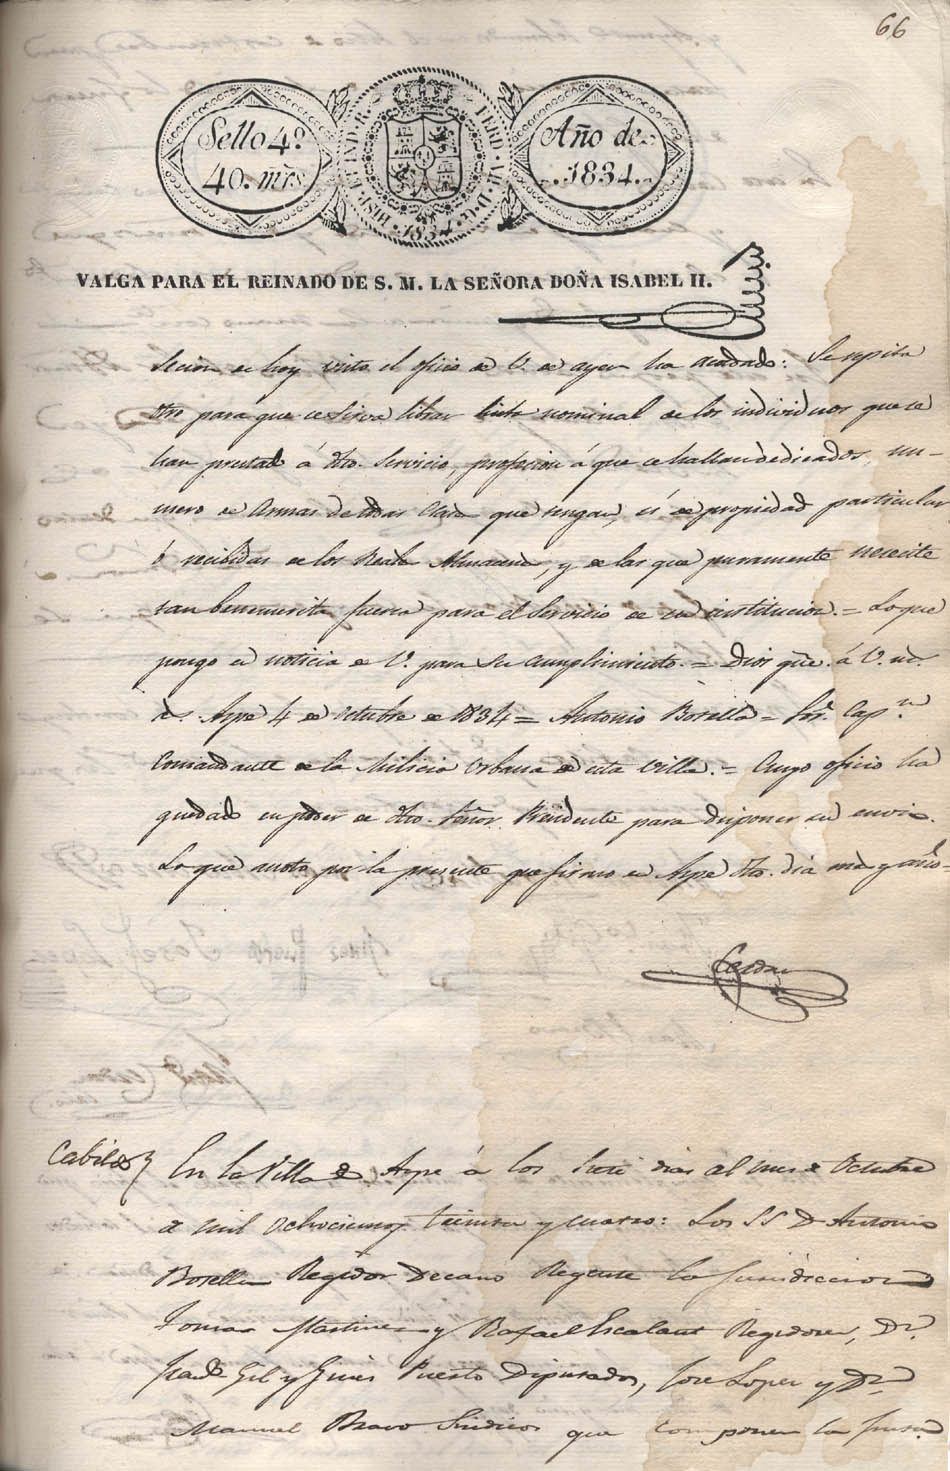 66
Sello 4º.
40. mrs
HISP. ET IND. R.
FERD. VII. D. G.
1834
Año de
1834.
VALGA PARA EL REINADO DE S. M. LA SEÑORA DOÑA ISABEL II.
Secion de hoy visto el oficio de V. de ayer ha acordado: Se repita
otro para que se sirva librar lista nominal de los individuos que se
han prestado á dho. Servicio, profesion á que se hallan dedicados, nu-
mero de Armas de toda Clase que tengan, si de propiedad particular
ó recibidas de los Reales Almacenes, y de las que puramente necesite
tan benemerita fuerza para el Servicio de su institucion. = Lo que
pongo en noticia de V. para su cumplimiento. = Dios gue. á V. m.
as. Aspe 4 de Octubre de 1834 = Antonio Botella = Sor. Capn.
Comandante de la Milicia Urbana de esta Villa. = Cuyo oficio ha
quedado en poder de dho. Señor Presidente para disponer su envio.
Lo que anoto por la presente que firmo en Aspe dho. dia mes y año =
Cerdan
Cabildo
En la Villa de Aspe á los Siete dias del mes de Octubre
de mil ochocientos treinta y cuatro: Los SS. D. Antonio
Botella Regidor Decano Regente la Jurisdiccion
Tomas Martinez y Rafael Escalant Regidores, Dn.
Gil y Gines Puerto Diputados, Jose Lopez y Dn.
Manuel Bravo Sindicos que componen la